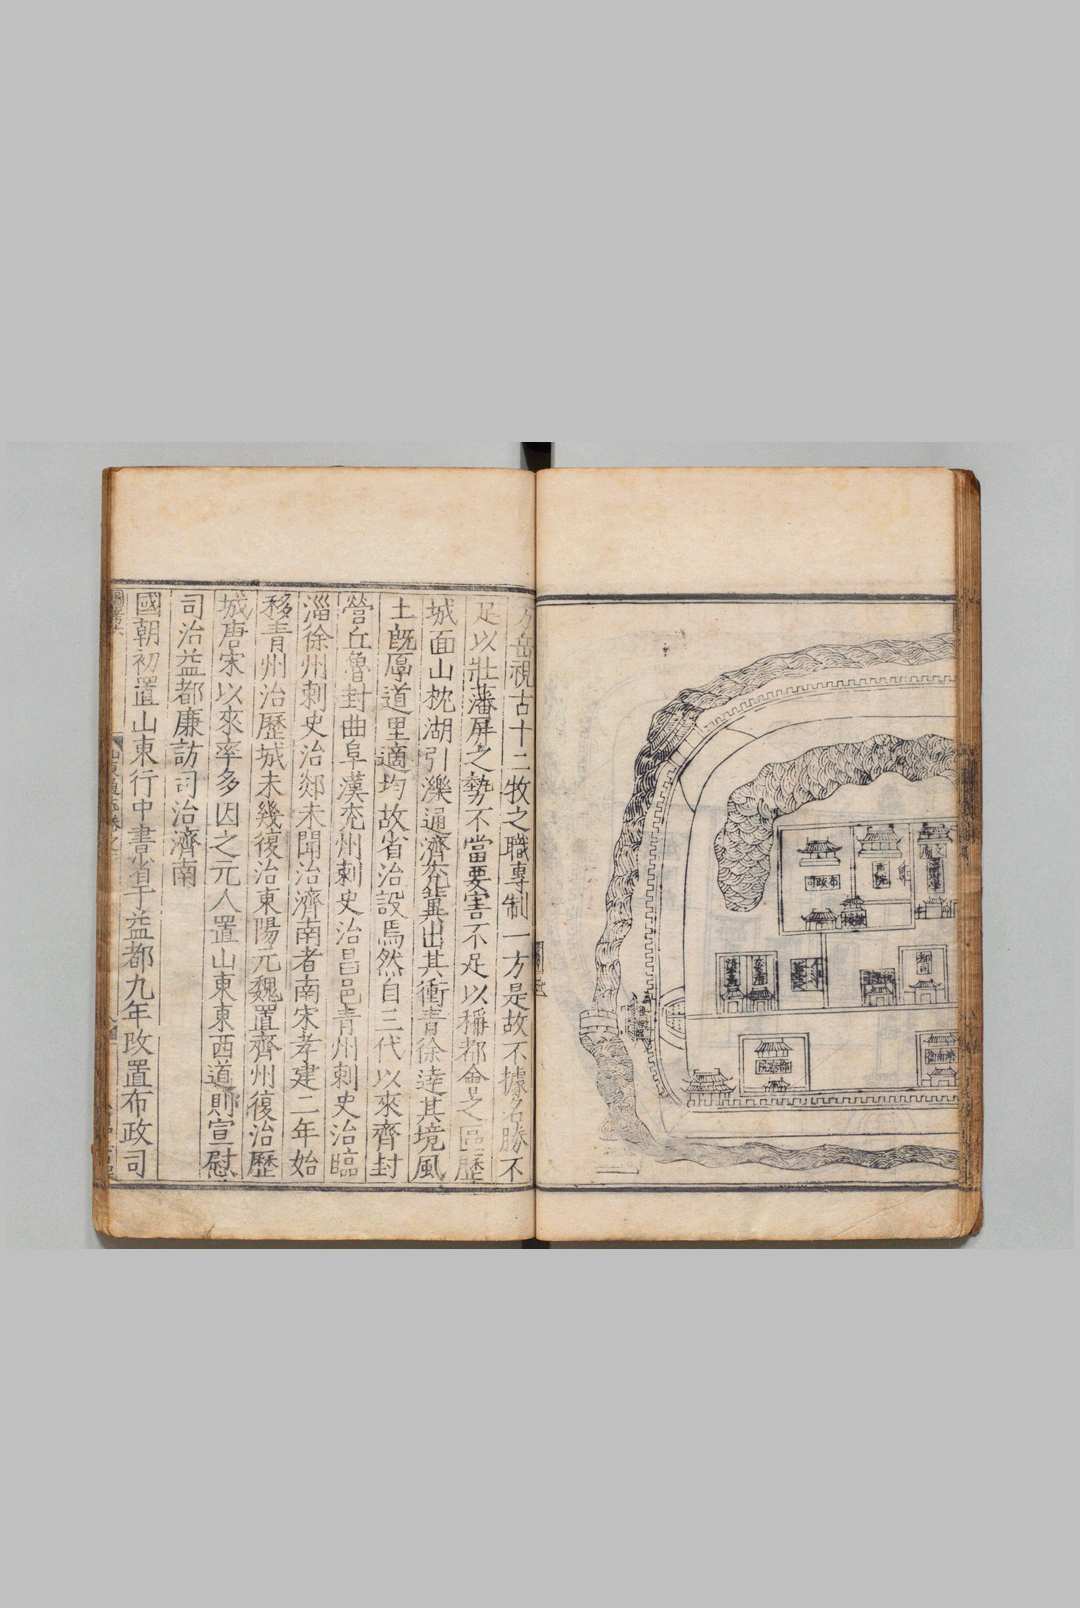 布政司
院
都司
都察院
方岳視古十二牧之職專制一方是故不據名勝不
足以壯藩屏之勢不當要害不足以稱都會之區歷
城面山枕湖引濼通濟兗冀出其衝青徐逹其境風
土旣厚道里適均故省治設焉然自三代以來齊封
營丘魯封曲阜漢兗州刺史治昌邑青州刺史治臨
淄徐州刺史治郯未聞治濟南者南宋孝建二年始
移青州治歷城未幾復治東陽元魏置齊州復治歷
城唐宋以來率多因之元人置山東東西道則宣慰
司治益都廉訪司治濟南
國朝初置山東行中書省于益都九年改置布政司